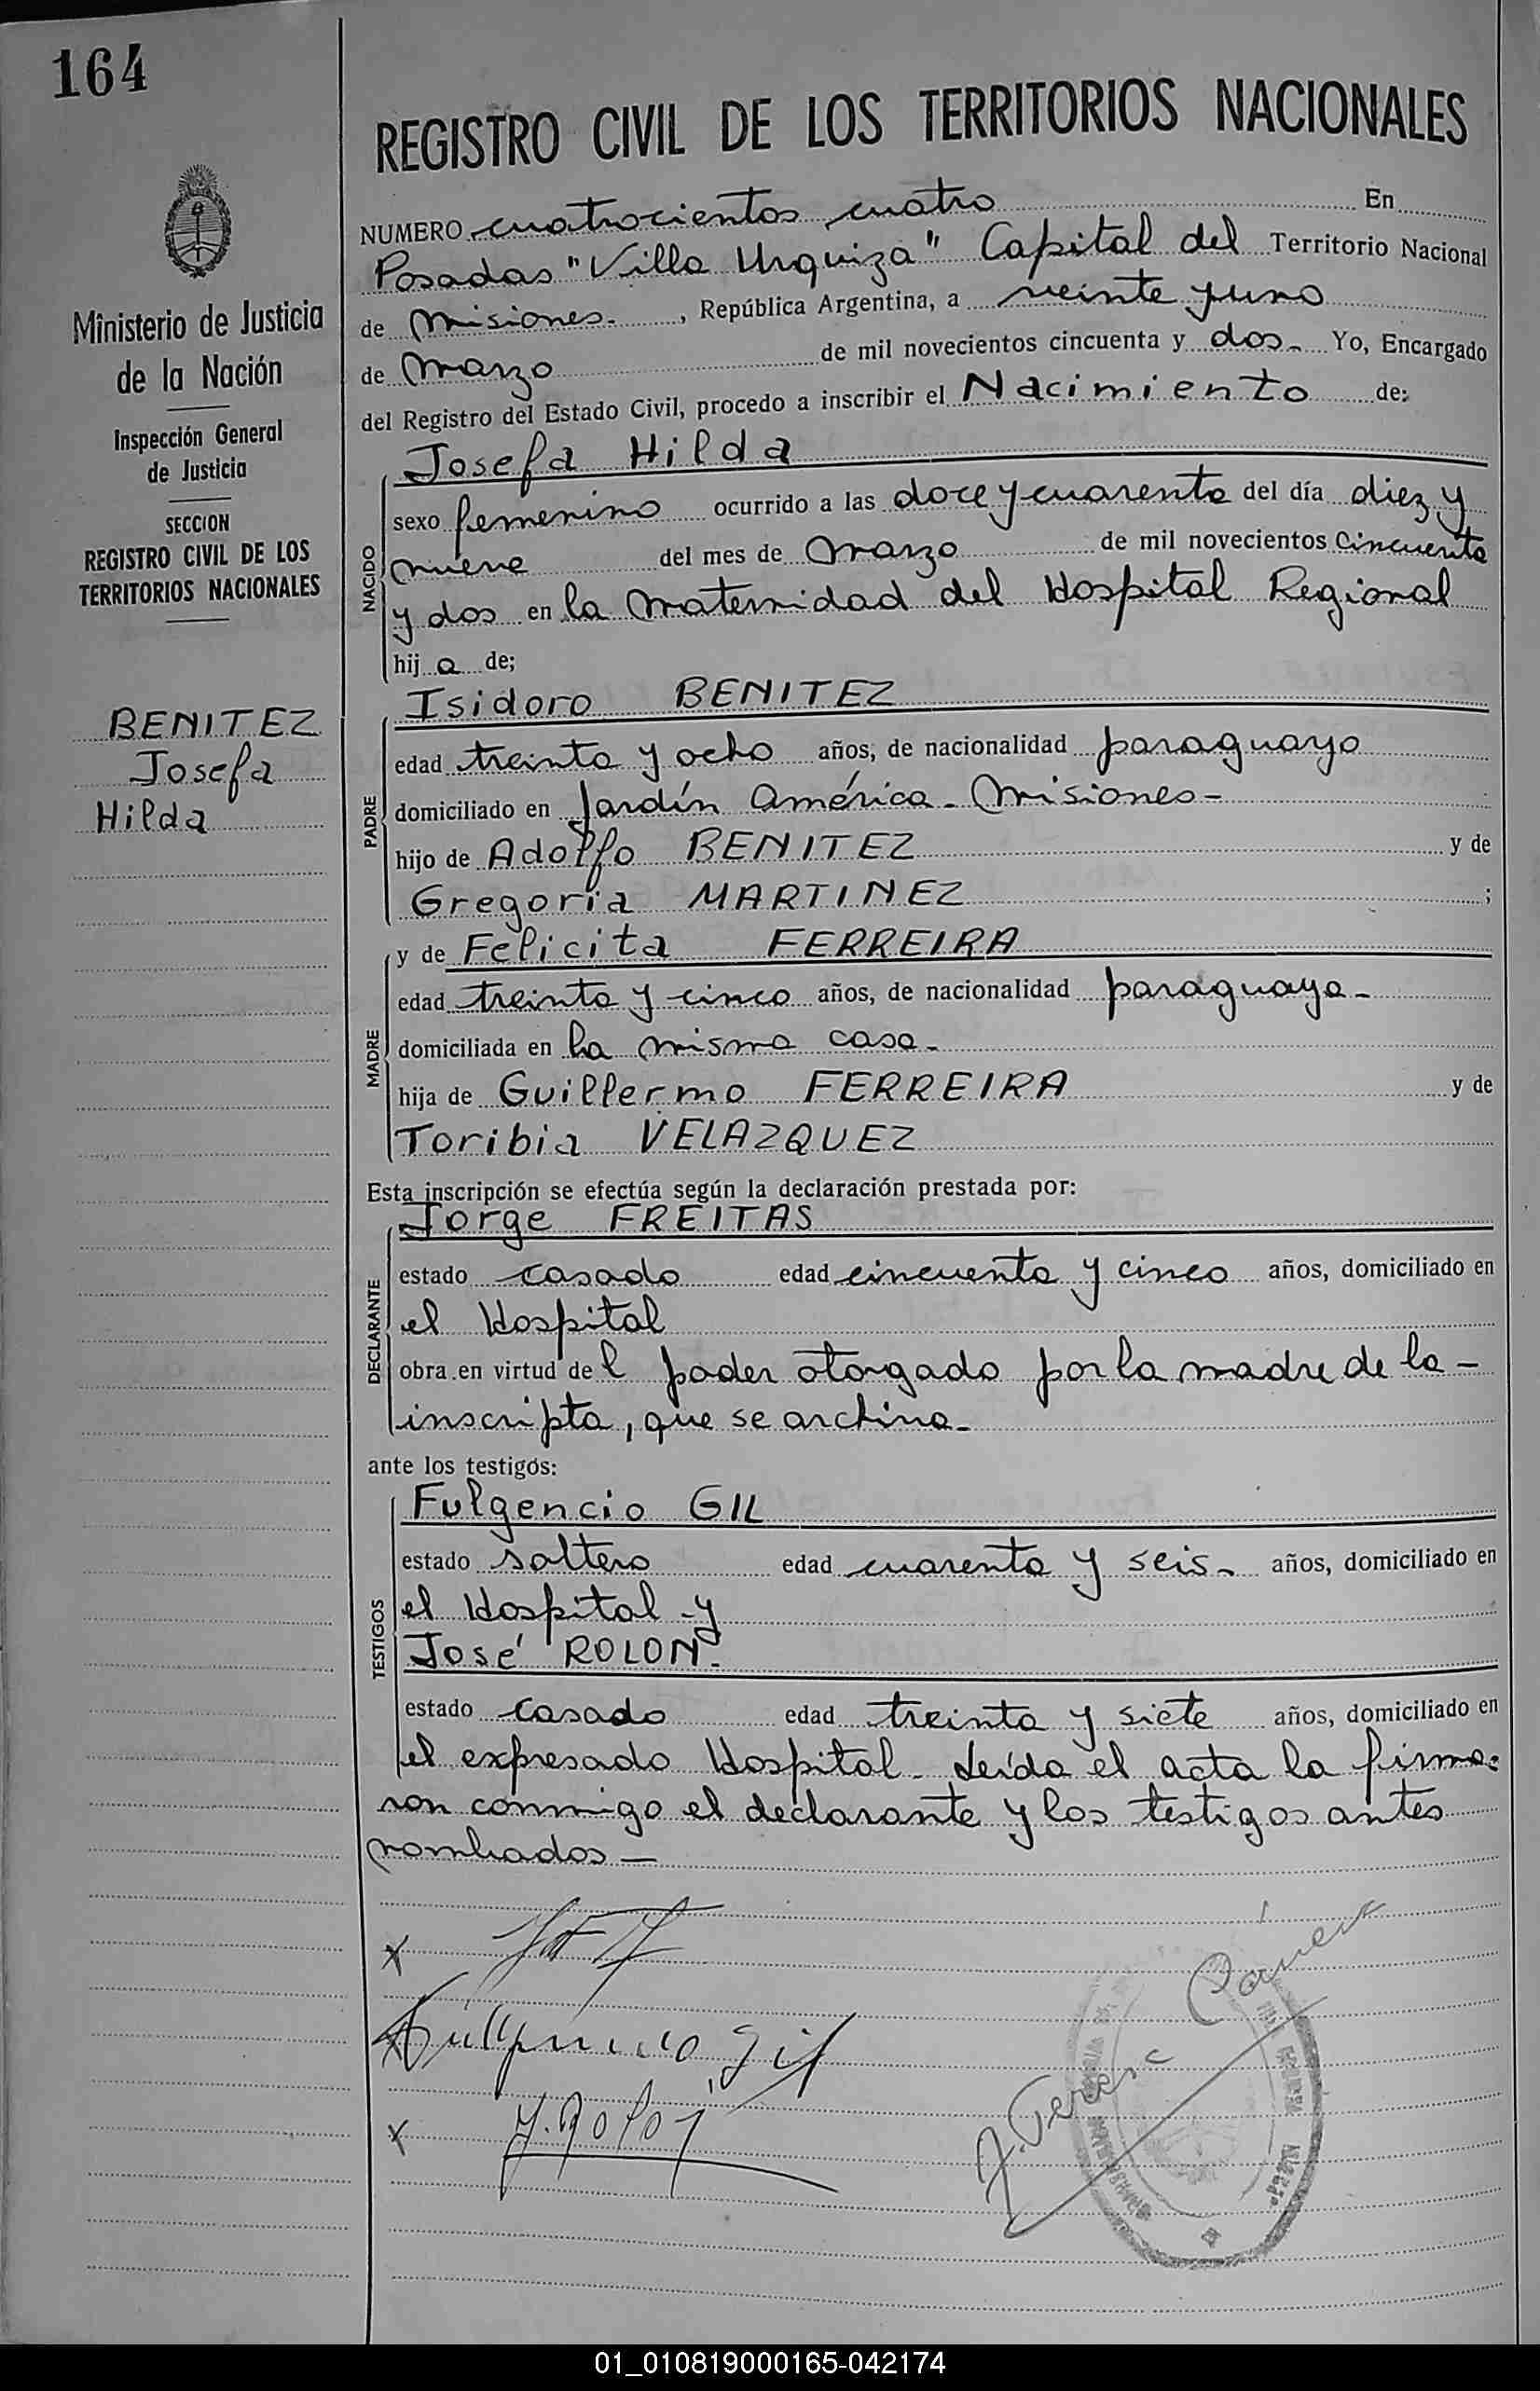 164
REGISTRO CIVIL DE LOS TERRITORIOS NACIONALES
Ministerio de Justicia
de la Nación
Inspección General
de Justicia
SECCION
REGISTRO CIVIL DE LOS
TERRITORIOS NACIONALES
BENITEZ
Josefa
Hilda
NUMERO cuatrocientos cuatro En
Posadas "Villa Urquiza" Capital del Territorio Nacional
de Misiones. , República Argentina, a veinte y uno
de Marzo de mil novecientos cincuenta y dos- Yo, Encargado
del Registro del Estado Civil, procedo a inscribir el Nacimiento de:
NACIDO
Josefa Hilda
sexo femenino ocurrido a las doce y cuarenta del día diez y
nueve del mes de Marzo de mil novecientos Cincuenta
y dos en la Maternidad del Hospital Regional
hija de;
PADRE
Isidoro BENITEZ
edad treinta y ocho años, de nacionalidad paraguayo
domiciliado en Jardín América - Misiones-
hijo de Adolfo BENITEZ y de
Gregoria MARTINEZ ;
MADRE
y de Felicita FERREIRA
edad treinta y cinco años, de nacionalidad paraguaya-
domiciliada en la misma casa-
hija de Guillermo FERREIRA y de
Toribia VELAZQUEZ
Esta inscripción se efectúa según la declaración prestada por:
DECLARANTE
Jorge FREITAS
estado casado edad cincuenta y cinco años, domiciliado en
el Hospital
obra en virtud del poder otorgado por la madre de la -
inscripta, que se archiva-
ante los testigos:
TESTIGOS
Fulgencio GIL
estado soltero edad cuarenta y seis- años, domiciliado en
el Hospital - y
José ROLON-
estado casado edad treinta y siete años, domiciliado en
el expresado Hospital - Leída el acta la firma-
ron conmigo el declarante y los testigos antes
nombrados -
x
Fulgencio Gil
x J. Rolon
J. Teresa
01_010819000165-042174